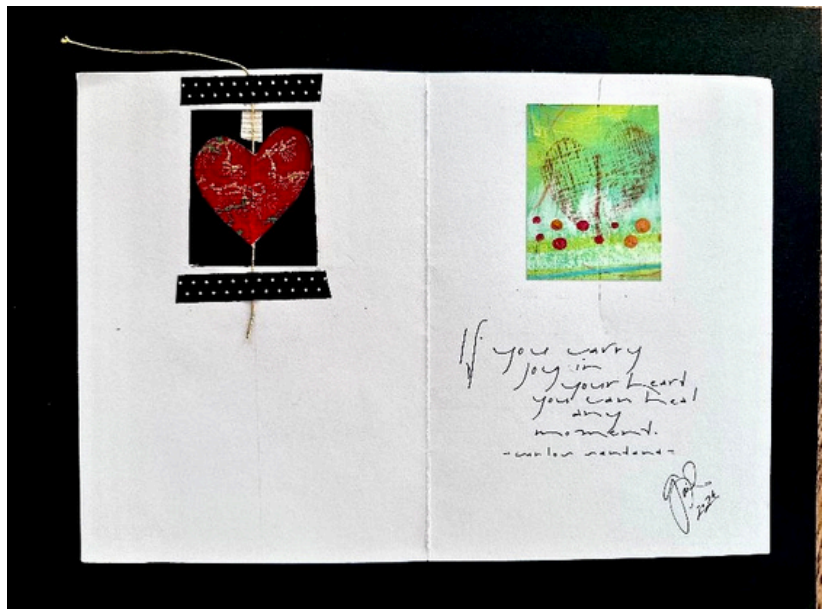 If you carry
joy in
your heart
you can heal
any
moment.
-carlos santana-